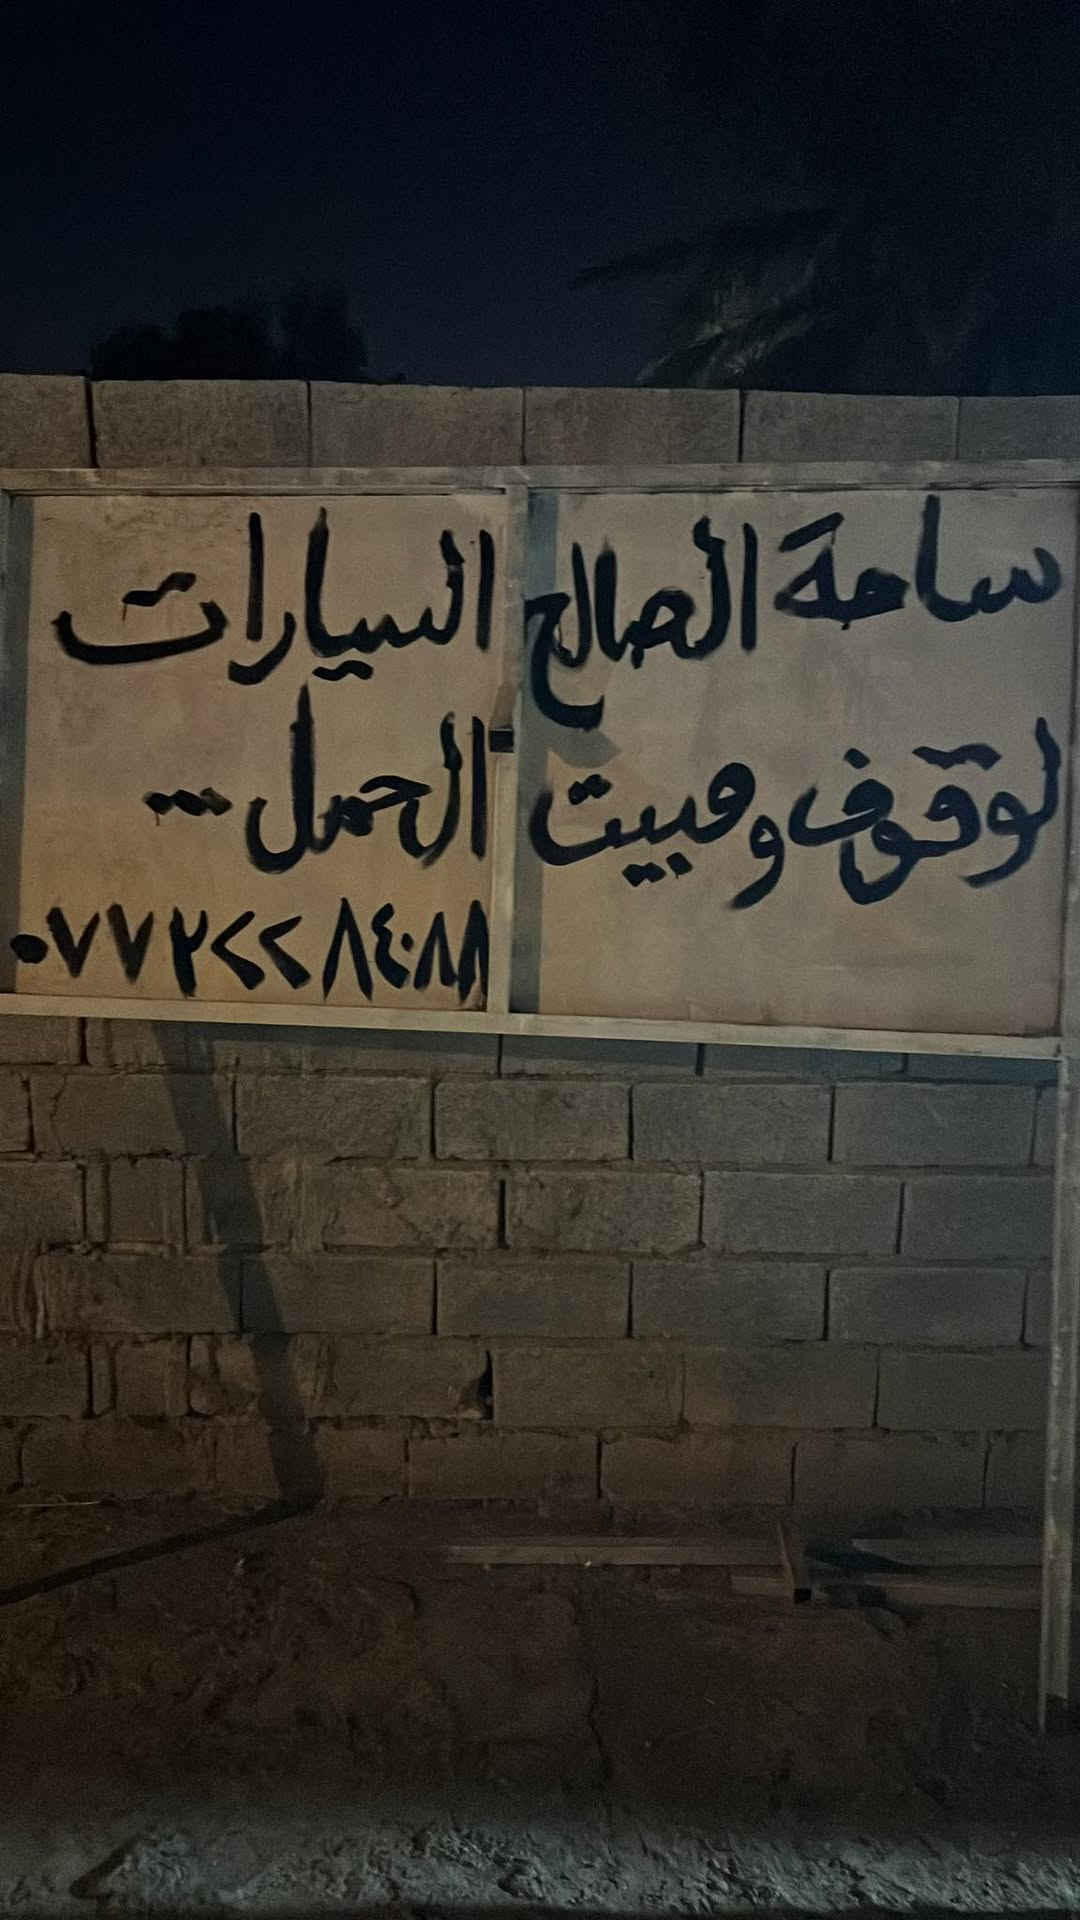 ساحة الصالح
لوقوف ومبيت
السيارات
الحمل ...
٠٧٧٣٢٢٨٤٠٨٨